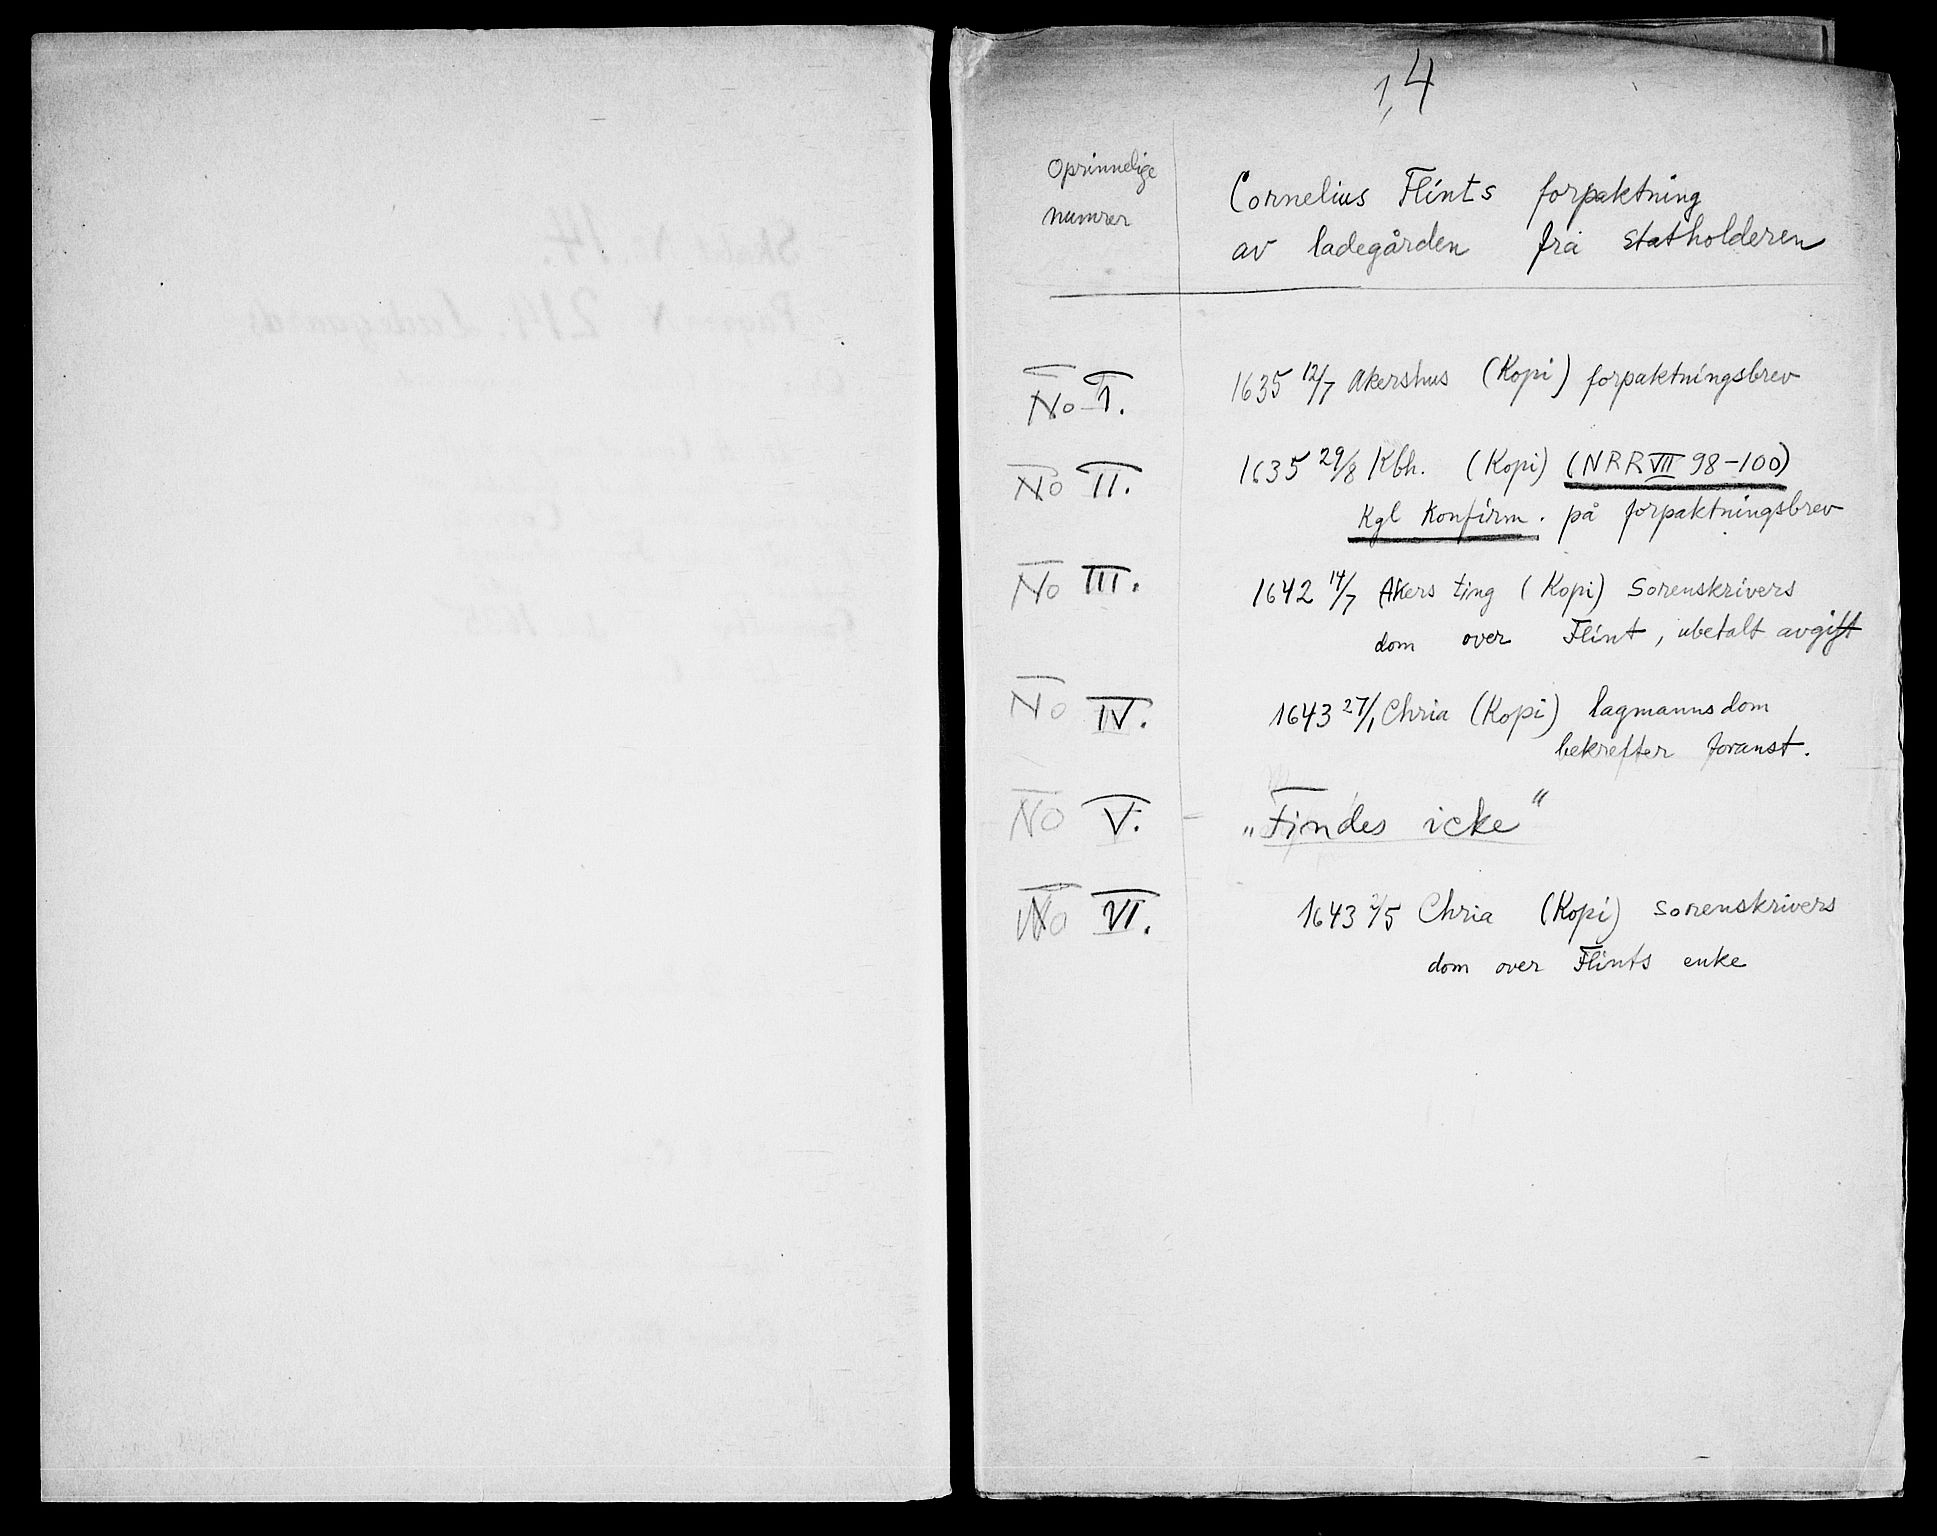 14
Oprinnelige
numrer
Cornelius Flints forpaktning
av ladegården fra statholderen
No I. 1635 12/7 Akershus (Kopi) forpaktningsbrev
No II. 1635 29/8 Kbh. (Kopi) (NRR VII 98-100)
Kgl Konfirm. på forpaktningsbrev
No III. 1642 14/7 Akers ting (Kopi) Sorenskrivers
dom over Flint, ubetalt avgift
No IV. 1643 27/1 Chria (Kopi) lagmannsdom
bekrefter foranst.
No V. - „Findes icke“
No VI. 1643 /5 Chria (Kopi) sorenskrivers
dom over Flints enke